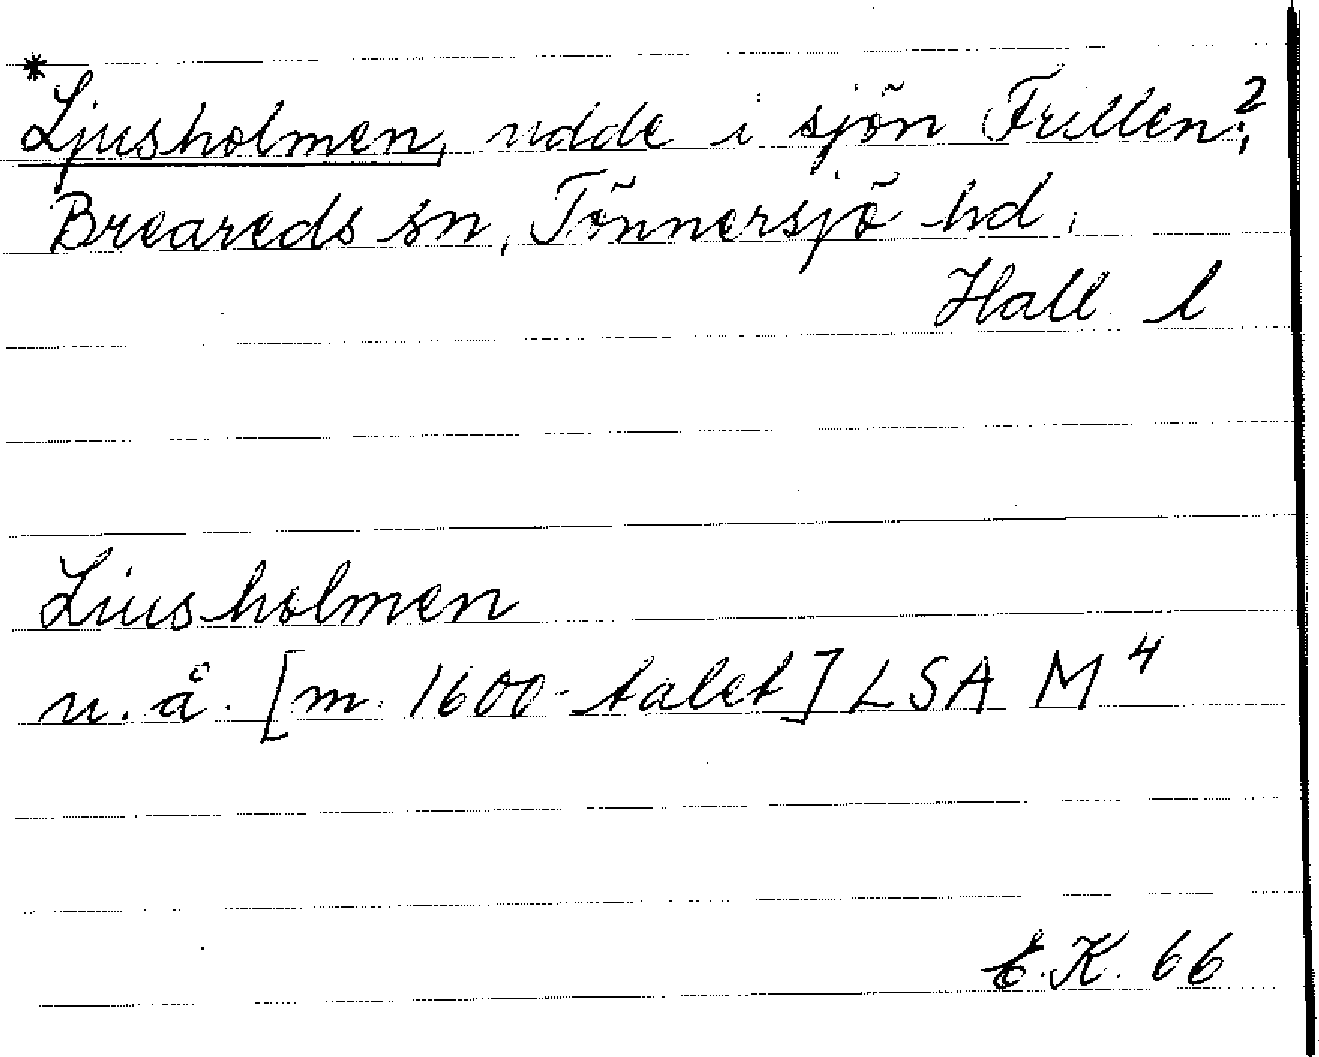 *Ljusholmen, udde i sjön Frillen?,
Breareds sn, Tönnersjö hd,
Hall l
Liusholmen
u. å. [m. 1600-talet] LSA M4
E.K. 66